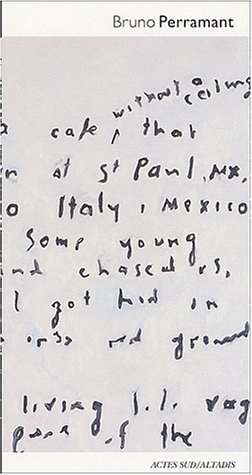 Bruno Perramant
without a
ceiling
cafe, that
n at St Paul, MX,
o Italy, Mexico
some young
nd chased us,
I got hid in
red ground
living I.I. vag
of the
ACTES SUD/ALTADIS